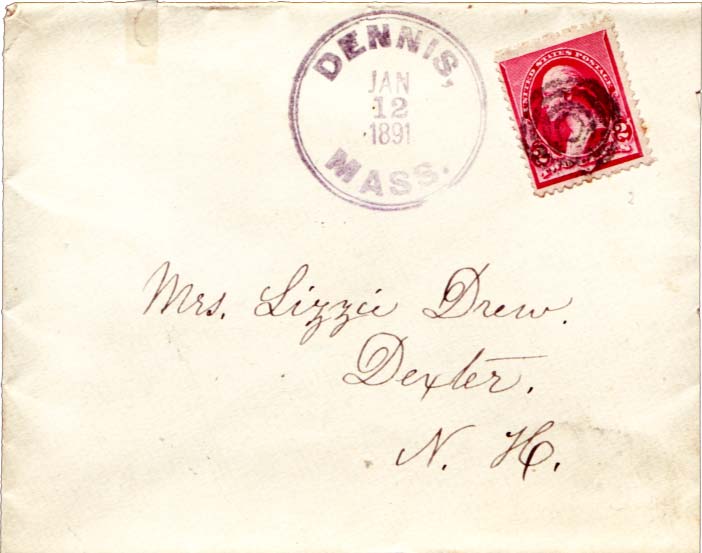 DENNIS,
JAN
12
1891
MASS.
UNITED STATES POSTAGE
2 2
Mrs. Lizzie Drew.
Dexter.
N. H.